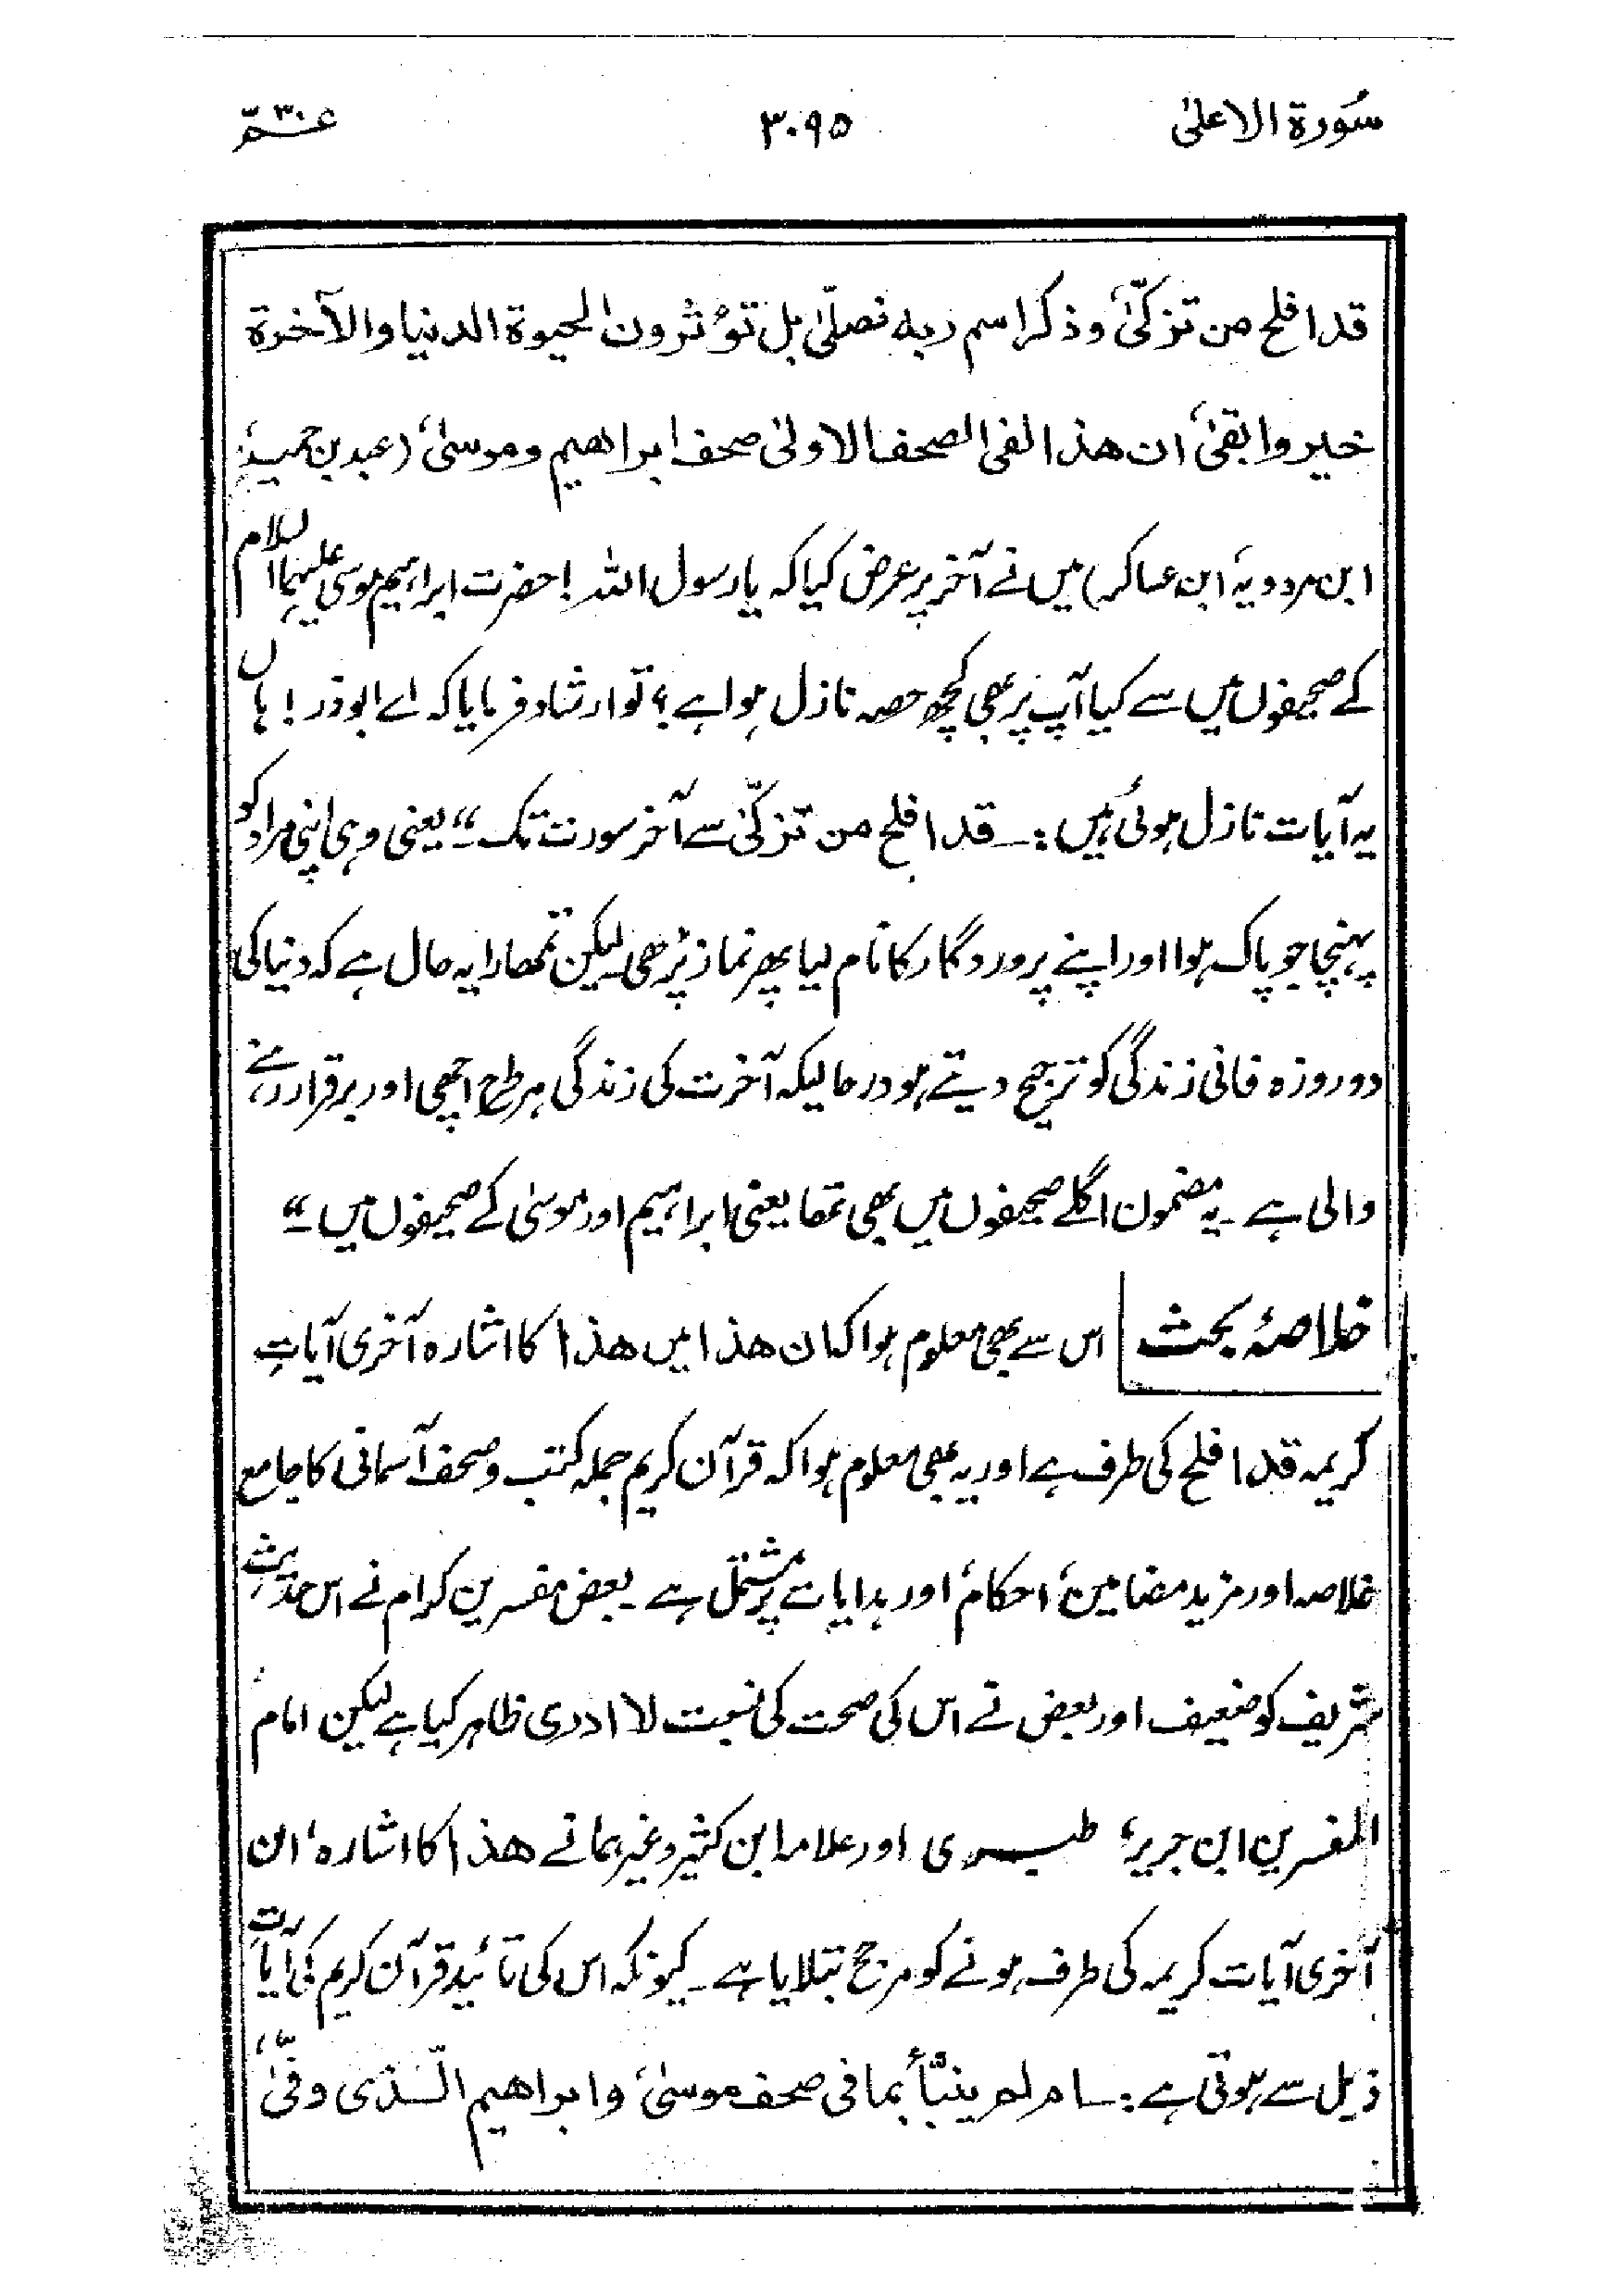 سُورۃ الاعلیٰ ۳۰۹۵ عـــمّ ۳۰
قد افلح من تزکّیٰ وذکر اسم ربہ فصلّیٰ بل تؤثرون الحیوۃ الدنیا والآخرۃ
خیر وابقیٰ ان ھذا لفی الصحف الاولیٰ صحف ابراھیم وموسیٰ (عبد بن حمید،
ابن مردویہ، ابن عساکر) میں نے آخر پر عرض کیا کہ یا رسول اللہ! حضرت ابراہیم موسی علیہما السلام
کے صحیفوں میں سے کیا آپ پر بھی کچھ حصہ نازل ہوا ہے؟ تو ارشاد فرمایا کہ اے ابوذر! ہاں
یہ آیات نازل ہوئی ہیں:۔ قد افلح من تزکّیٰ سے آخر سورت تک۔“ یعنی وہی اپنی مراد کو
پہنچا جو پاک ہوا اور اپنے پروردگار کا نام لیا پھر نماز پڑھی۔ لیکن تمھارا یہ حال ہے کہ دنیا کی
دو روزہ فانی زندگی کو ترجیح دیتے ہو درحالیکہ آخرت کی زندگی ہر طرح اچھی اور برقرار رہنے
والی ہے۔ یہ مضمون اگلے صحیفوں میں بھی تھا یعنی ابراہیم اور موسیٰ کے صحیفوں میں۔“
خلاصۂ بحث اس سے بھی معلوم ہوا کہ ان ھذا میں ھذا کا اشارہ آخری آیاتِ
کریمہ قد افلح کی طرف ہے اور یہ بھی معلوم ہوا کہ قرآن کریم جملہ کتب و صحف آسمانی کا جامع
خلاصہ اور مزید مضامین، احکام، اور ہدایات پر مشتمل ہے۔ بعض مفسرین کرام نے اس حدیثِ
شریف کو ضعیف اور بعض نے اس کی صحت کی نسبت لا ادری ظاہر کیا ہے لیکن امام
المفسرین ابن جریر، طبـــری اور علامہ ابن کثیر وغیرہما نے ھذا کا اشارہ، ان
آخری آیات کریمہ کی طرف ہونے کو مرجح بتلایا ہے۔ کیونکہ اس کی تائید قرآن کریم کی آیاتِ
ذیل سے ہوتی ہے:۔ ام لم ینبّأ بما فی صحف موسیٰ، وابراھیم الّذی وفّیٰ،